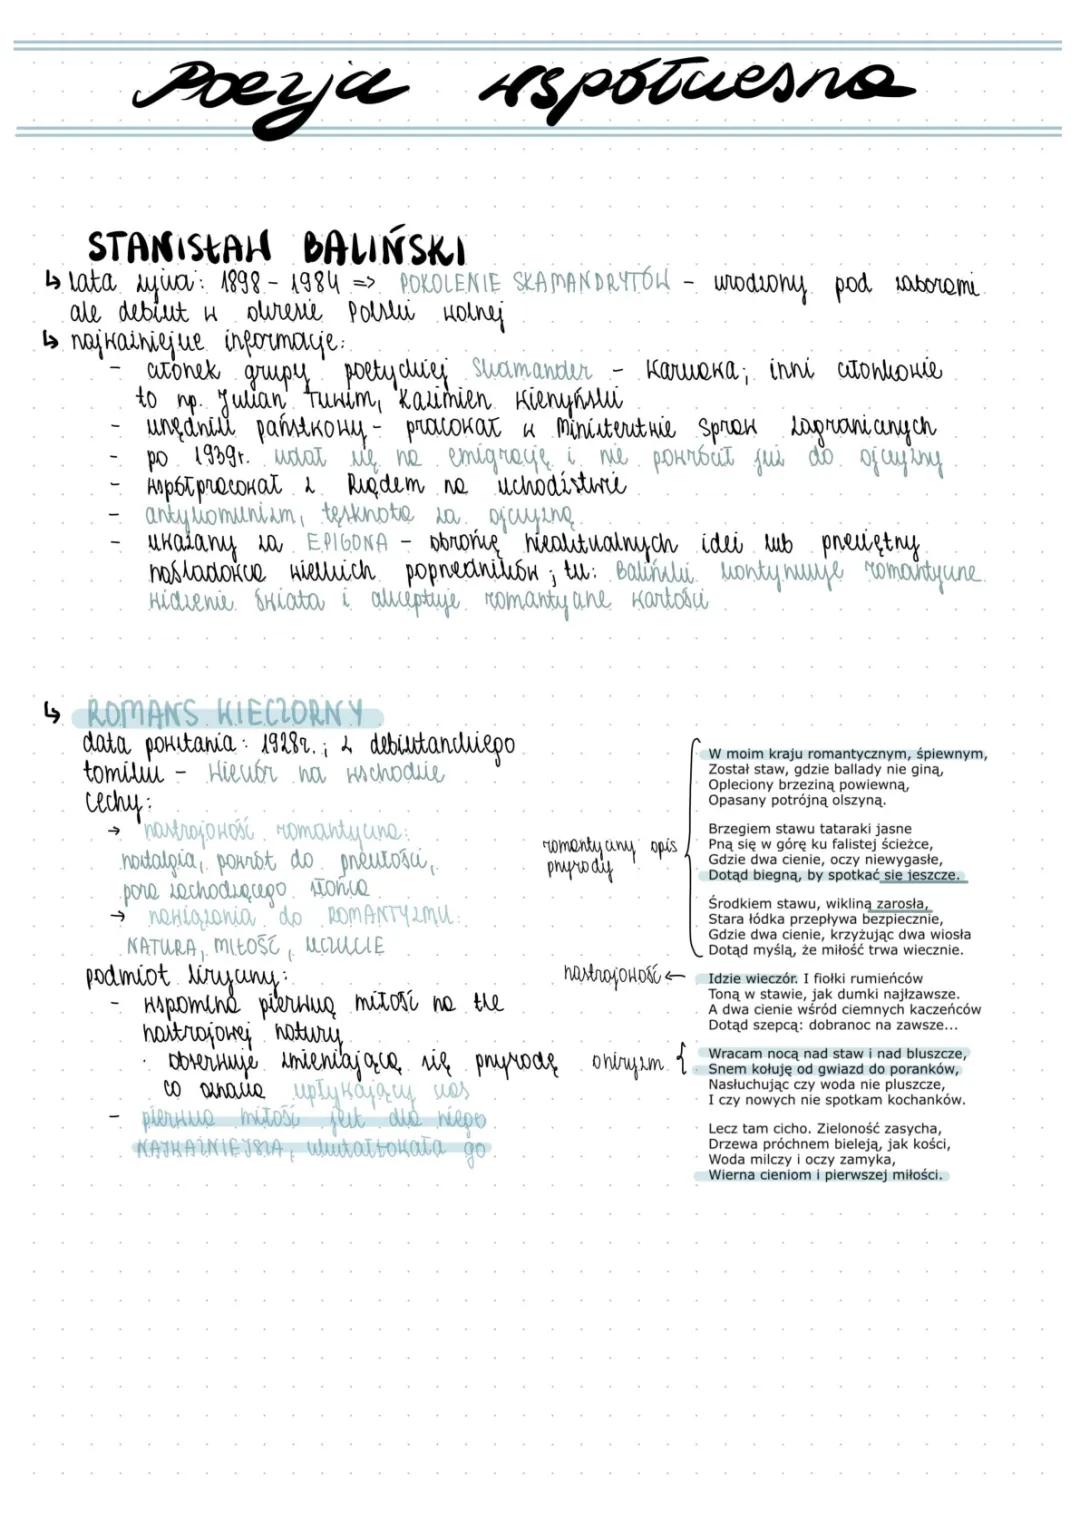 Poezja współczesna
STANISŁAW BALIŃSKI
↳ lata życia: 1898 - 1984 => POKOLENIE SKAMANDRYTÓW - urodzony pod zaborami
ale debiut w okresie Polski wolnej
↳ najważniejsze informacje:
- członek grupy poetyckiej Skamander - Karwoka; inni członkowie
to np. Julian Tuwim, Kazimierz Wierzyński
- urzędnik państwowy - pracował w Ministerstwie Spraw Zagranicznych
- po 1939r. udał się na emigrację i nie powrócił już do ojczyzny
- współpracował z Rządem na uchodźstwie
- antykomunizm, tęsknota za ojczyzną
- ukazany za EPIGONA - obrońcę nieaktualnych idei lub przeciętny
naśladowca wielkich poprzedników; tu: Baliński kontynuuje romantyczne
widzenie świata i akceptuje romantyczne wartości
↳ ROMANS WIECZORNY
data powstania: 1928r.; z debiutanckiego
tomiku - Wieczór na wschodzie
cechy:
→ nastrojowość romantyczna:
nostalgia, powrót do przeszłości,
pora zachodzącego słońca
→ nawiązania do ROMANTYZMU:
NATURA, MIŁOŚĆ, UCZUCIE
podmiot liryczny:
- wspomina pierwszą miłość na tle
nastrojowej natury
· obserwuje zmieniającą się przyrodę
co oznacza upływający czas
- pierwsza miłość jest dla niego
NAJWAŻNIEJSZA, ukształtowała go
romantyczny opis
przyrody
W moim kraju romantycznym, śpiewnym,
Został staw, gdzie ballady nie giną,
Opleciony brzeziną powiewną,
Opasany potrójną olszyną.
Brzegiem stawu tataraki jasne
Pną się w górę ku falistej ścieżce,
Gdzie dwa cienie, oczy niewygasłe,
Dotąd biegną, by spotkać się jeszcze.
Środkiem stawu, wikliną zarosła,
Stara łódka przepływa bezpiecznie,
Gdzie dwa cienie, krzyżując dwa wiosła
Dotąd myślą, że miłość trwa wiecznie.
nastrojowość ←
Idzie wieczór. I fiołki rumieńców
Toną w stawie, jak dumki najłzawsze.
A dwa cienie wśród ciemnych kaczeńców
Dotąd szepcą: dobranoc na zawsze...
oniryzm {
Wracam nocą nad staw i nad bluszcze,
Snem kołuję od gwiazd do poranków,
Nasłuchując czy woda nie pluszcze,
I czy nowych nie spotkam kochanków.
Lecz tam cicho. Zieloność zasycha,
Drzewa próchnem bieleją, jak kości,
Woda milczy i oczy zamyka,
Wierna cieniom i pierwszej miłości.